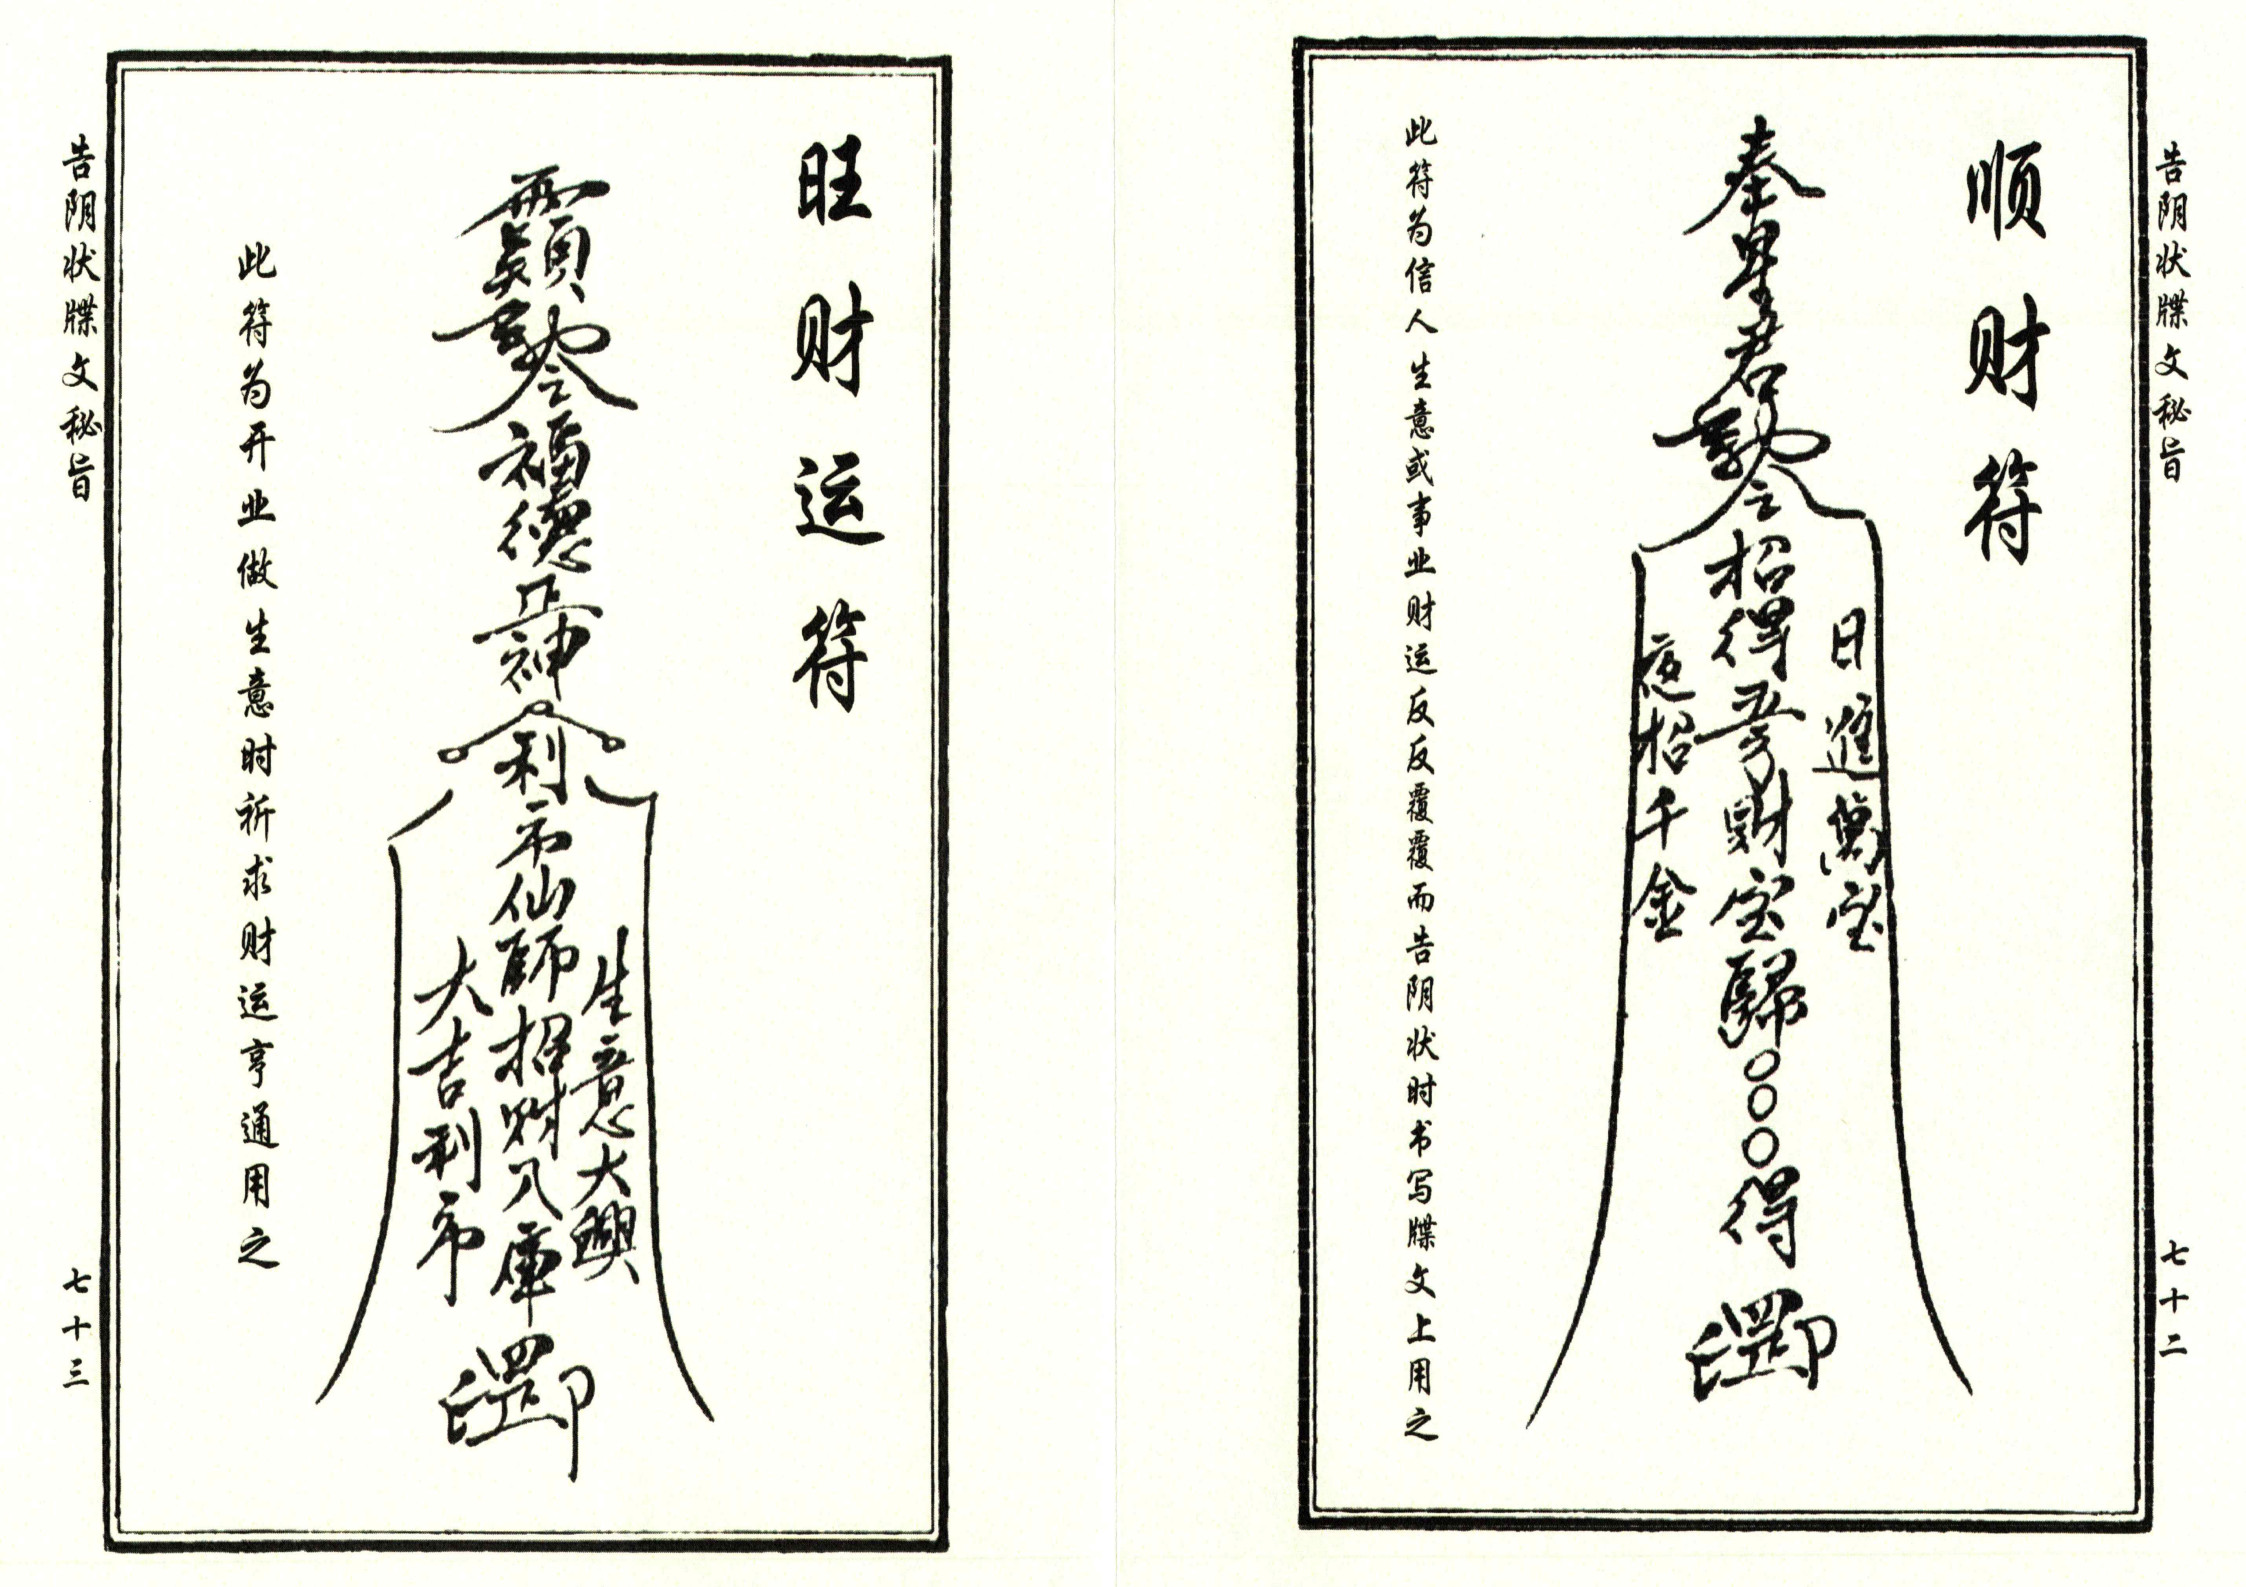 告阴状牒文秘旨
七十二
顺财符
日進萬宝
招得五方財宝歸〇〇〇得
夜招千金
此符为信人生意或事业财运反反覆覆而告阴状时书写牒文上用之
旺财运符
福德正神
利市仙師招財入庫
生意大興
大吉利市
此符为开业做生意时祈求财运亨通用之
告阴状牒文秘旨
七十三